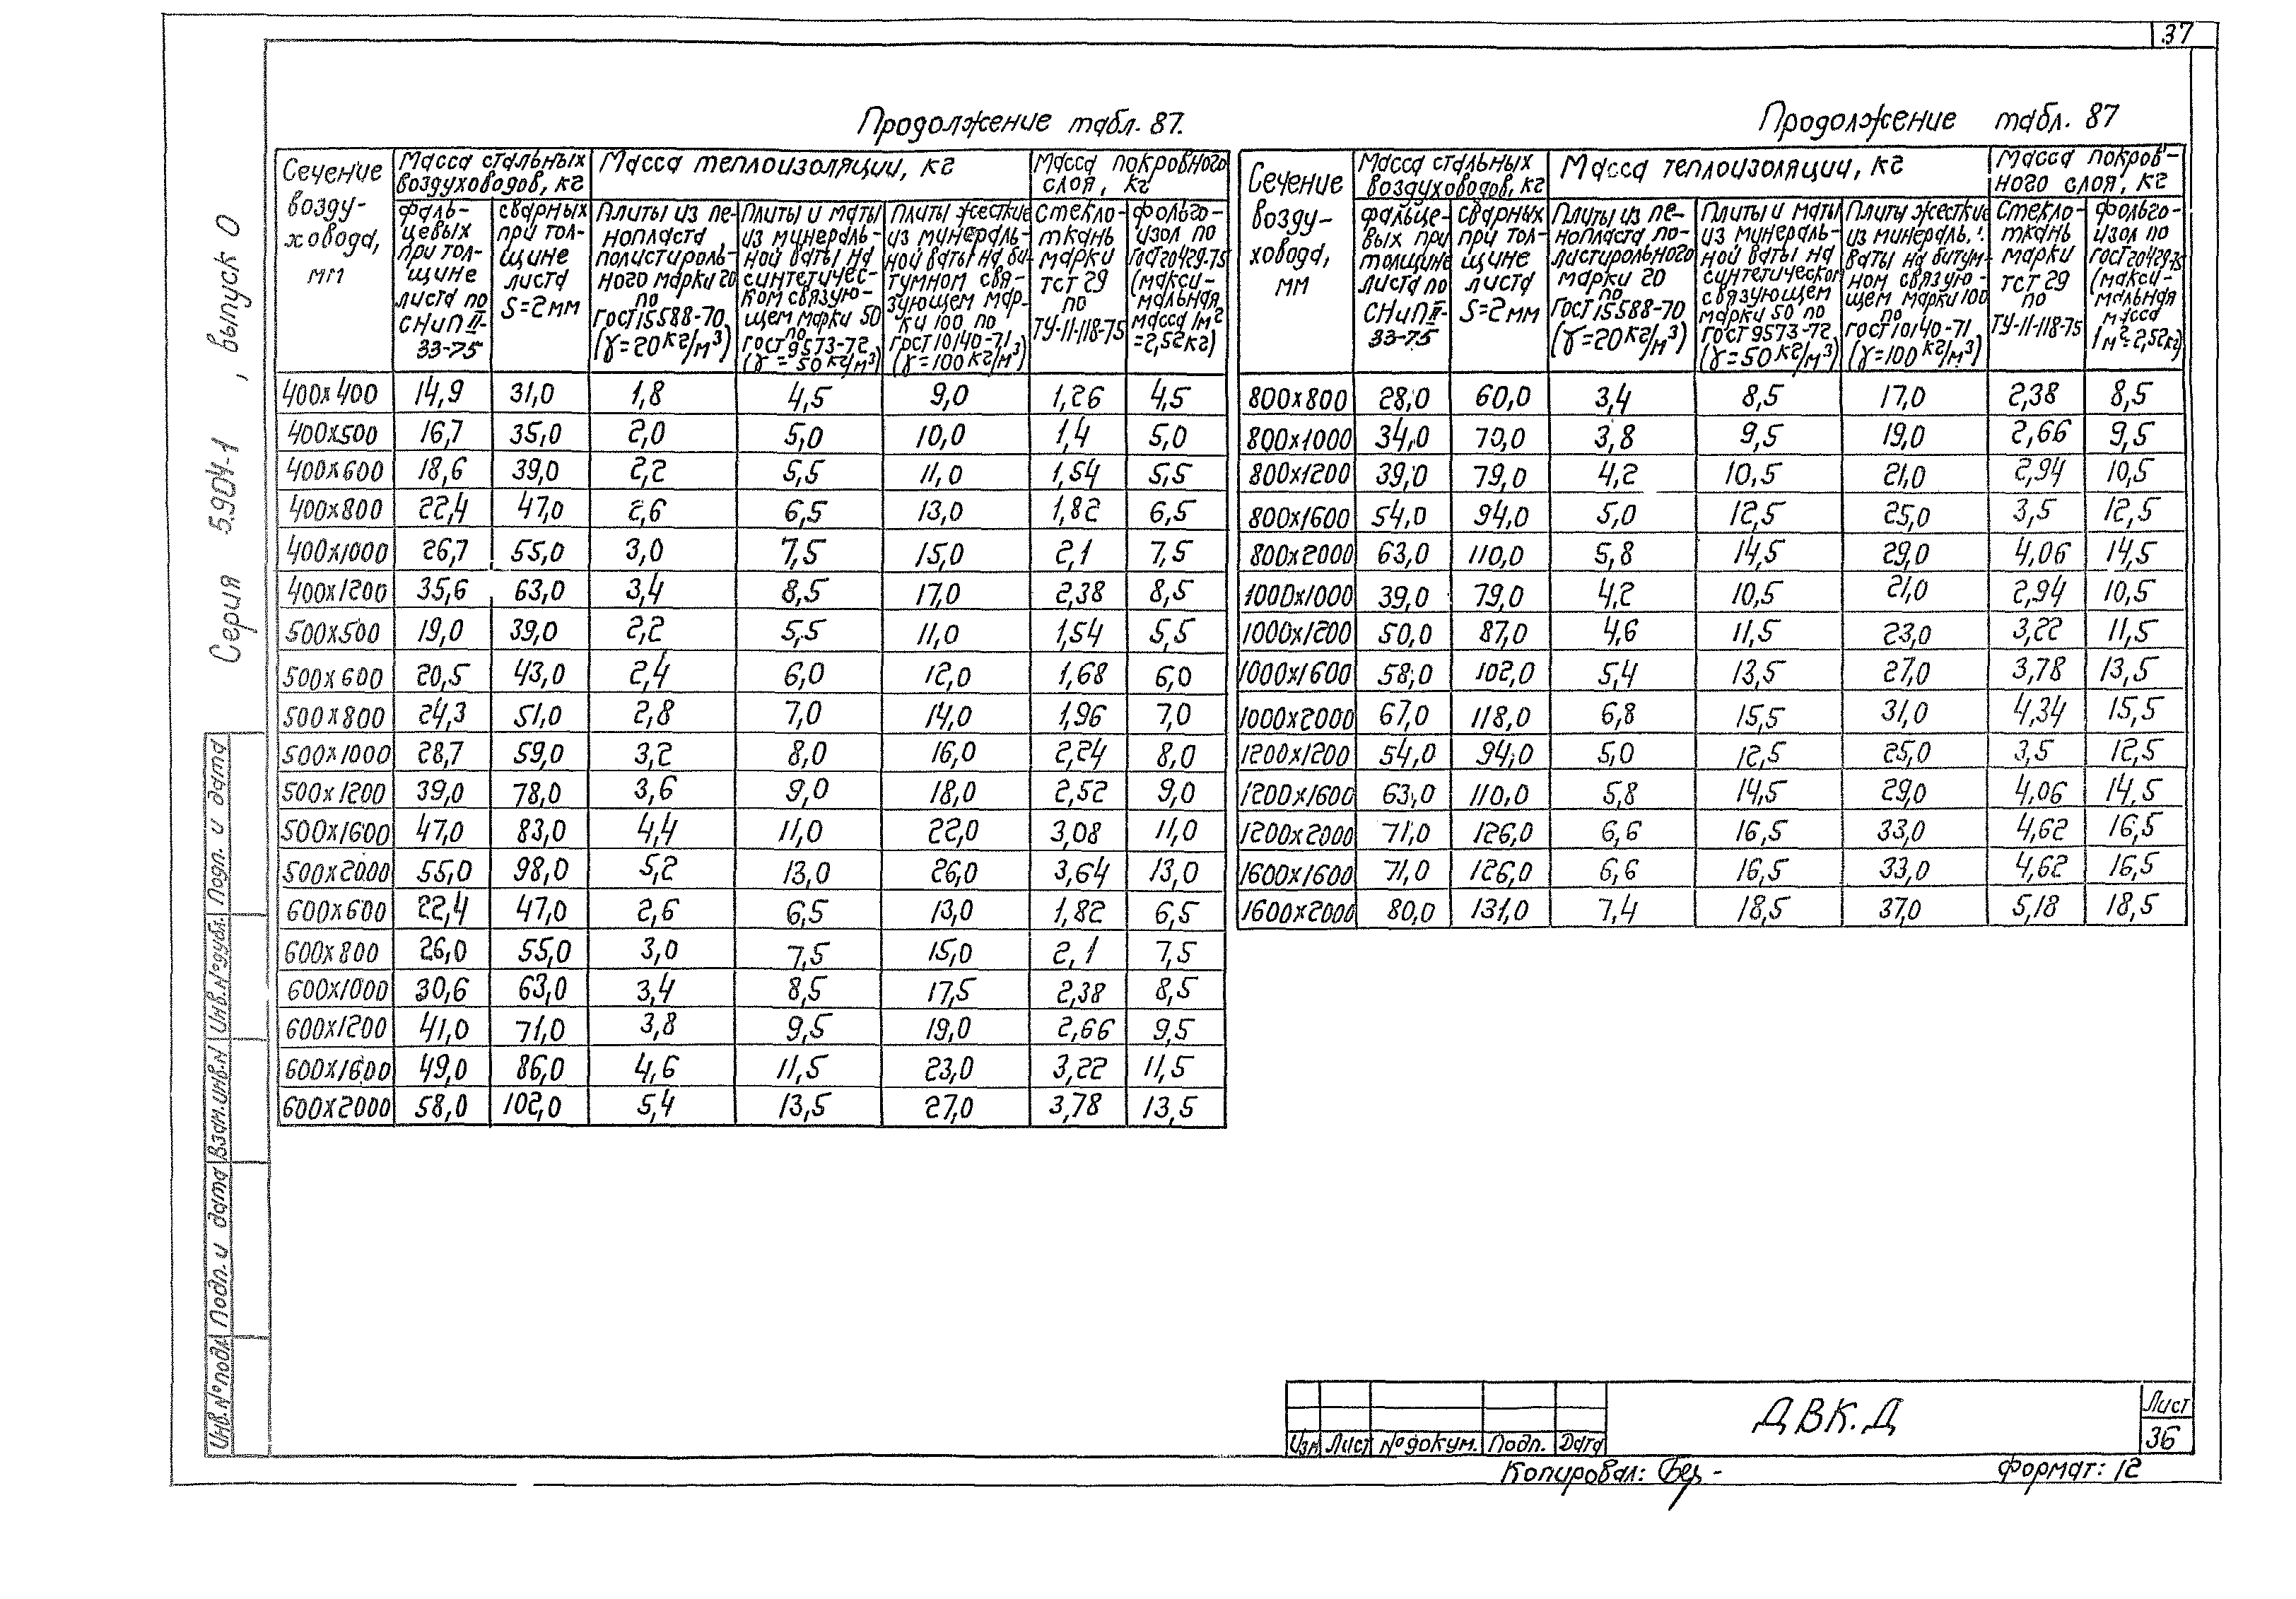 37
Серия 5.904-1, выпуск 0
Продолжение табл. 87.
Сечение возду-ховода, мм
Масса стальных воздуховодов, кг
Масса теплоизоляции, кг
Масса покровного слоя, кг
фаль-цевых при тол-щине листа по СНиП II-33-75
сварных при тол-щине листа S=2мм
Плиты из пе-нопласта полистироль-ного марки 20 по ГОСТ 15588-70 (γ=20кг/м³)
Плиты и маты из минераль-ной ваты на синтетичес-ком связую-щем марки 50 по ГОСТ 9573-72 (γ=50кг/м³)
Плиты жесткие из минераль-ной ваты на би-тумном свя-зующем мар-ки 100 по ГОСТ 10140-71 (γ=100кг/м³)
Стекло-ткань марки ТСТ 29 по ТУ-11-118-75
фольго-изол по ГОСТ 20429-75 (макси-мальная масса 1м²=2,52кг)
400х400 14,9 31,0 1,8 4,5 9,0 1,26 4,5
400х500 16,7 35,0 2,0 5,0 10,0 1,4 5,0
400х600 18,6 39,0 2,2 5,5 11,0 1,54 5,5
400х800 22,4 47,0 2,6 6,5 13,0 1,82 6,5
400х1000 26,7 55,0 3,0 7,5 15,0 2,1 7,5
400х1200 35,6 63,0 3,4 8,5 17,0 2,38 8,5
500х500 19,0 39,0 2,2 5,5 11,0 1,54 5,5
500х600 20,5 43,0 2,4 6,0 12,0 1,68 6,0
500х800 24,3 51,0 2,8 7,0 14,0 1,96 7,0
500х1000 28,7 59,0 3,2 8,0 16,0 2,24 8,0
500х1200 39,0 78,0 3,6 9,0 18,0 2,52 9,0
500х1600 47,0 83,0 4,4 11,0 22,0 3,08 11,0
500х2000 55,0 98,0 5,2 13,0 26,0 3,64 13,0
600х600 22,4 47,0 2,6 6,5 13,0 1,82 6,5
600х800 26,0 55,0 3,0 7,5 15,0 2,1 7,5
600х1000 30,6 63,0 3,4 8,5 17,5 2,38 8,5
600х1200 41,0 71,0 3,8 9,5 19,0 2,66 9,5
600х1600 49,0 86,0 4,6 11,5 23,0 3,22 11,5
600х2000 58,0 102,0 5,4 13,5 27,0 3,78 13,5
Продолжение табл. 87
Сечение возду-ховода, мм
Масса стальных воздуховодов, кг
Масса теплоизоляции, кг
Масса покров-ного слоя, кг
фальце-вых при толщине листа по СНиП II-33-75
сварных при тол-щине листа S=2мм
Плиты из пе-нопласта по-листирольного марки 20 по ГОСТ 15588-70 (γ=20кг/м³)
Плиты и маты из минераль-ной ваты на синтетическом связующем марки 50 по ГОСТ 9573-72 (γ=50кг/м³)
Плиты жесткие из минераль. ваты на битум-ном связую-щем марки 100 по ГОСТ 10140-71 (γ=100кг/м³)
Стекло-ткань марки ТСТ 29 по ТУ-11-118-75
фольго-изол по ГОСТ 20429-75 (макси-мальная масса 1м²=2,52кг)
800х800 28,0 60,0 3,4 8,5 17,0 2,38 8,5
800х1000 34,0 70,0 3,8 9,5 19,0 2,66 9,5
800х1200 39,0 79,0 4,2 10,5 21,0 2,94 10,5
800х1600 54,0 94,0 5,0 12,5 25,0 3,5 12,5
800х2000 63,0 110,0 5,8 14,5 29,0 4,06 14,5
1000х1000 39,0 79,0 4,2 10,5 21,0 2,94 10,5
1000х1200 50,0 87,0 4,6 11,5 23,0 3,22 11,5
1000х1600 58,0 102,0 5,4 13,5 27,0 3,78 13,5
1000х2000 67,0 118,0 6,8 15,5 31,0 4,34 15,5
1200х1200 54,0 94,0 5,0 12,5 25,0 3,5 12,5
1200х1600 63,0 110,0 5,8 14,5 29,0 4,06 14,5
1200х2000 71,0 126,0 6,6 16,5 33,0 4,62 16,5
1600х1600 71,0 126,0 6,6 16,5 33,0 4,62 16,5
1600х2000 80,0 131,0 7,4 18,5 37,0 5,18 18,5
Инв.№подл Подп. и дата Взам.инв.№ Инв.№дубл. Подп. и дата
Изм Лист №докум. Подп. Дата
ДВК.Д
Лист
36
Копировал:
Формат: 12